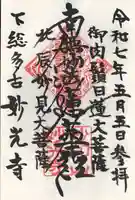 令和七年五月五日参拝
御内頭日蓮大菩薩
南無妙法蓮華経
北辰妙見大菩薩
下総多古妙光寺